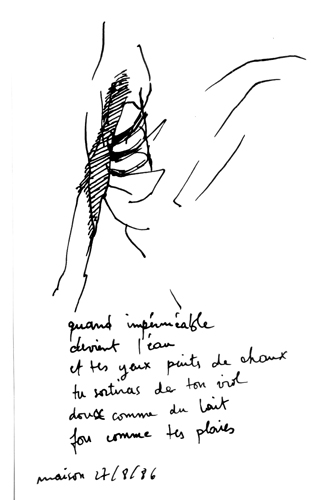 quand imperméable
devient l'eau
et tes yeux puits de chaux
tu sortiras de ton viol
doux comme du lait
fou comme tes plaies
maison 27/8/86